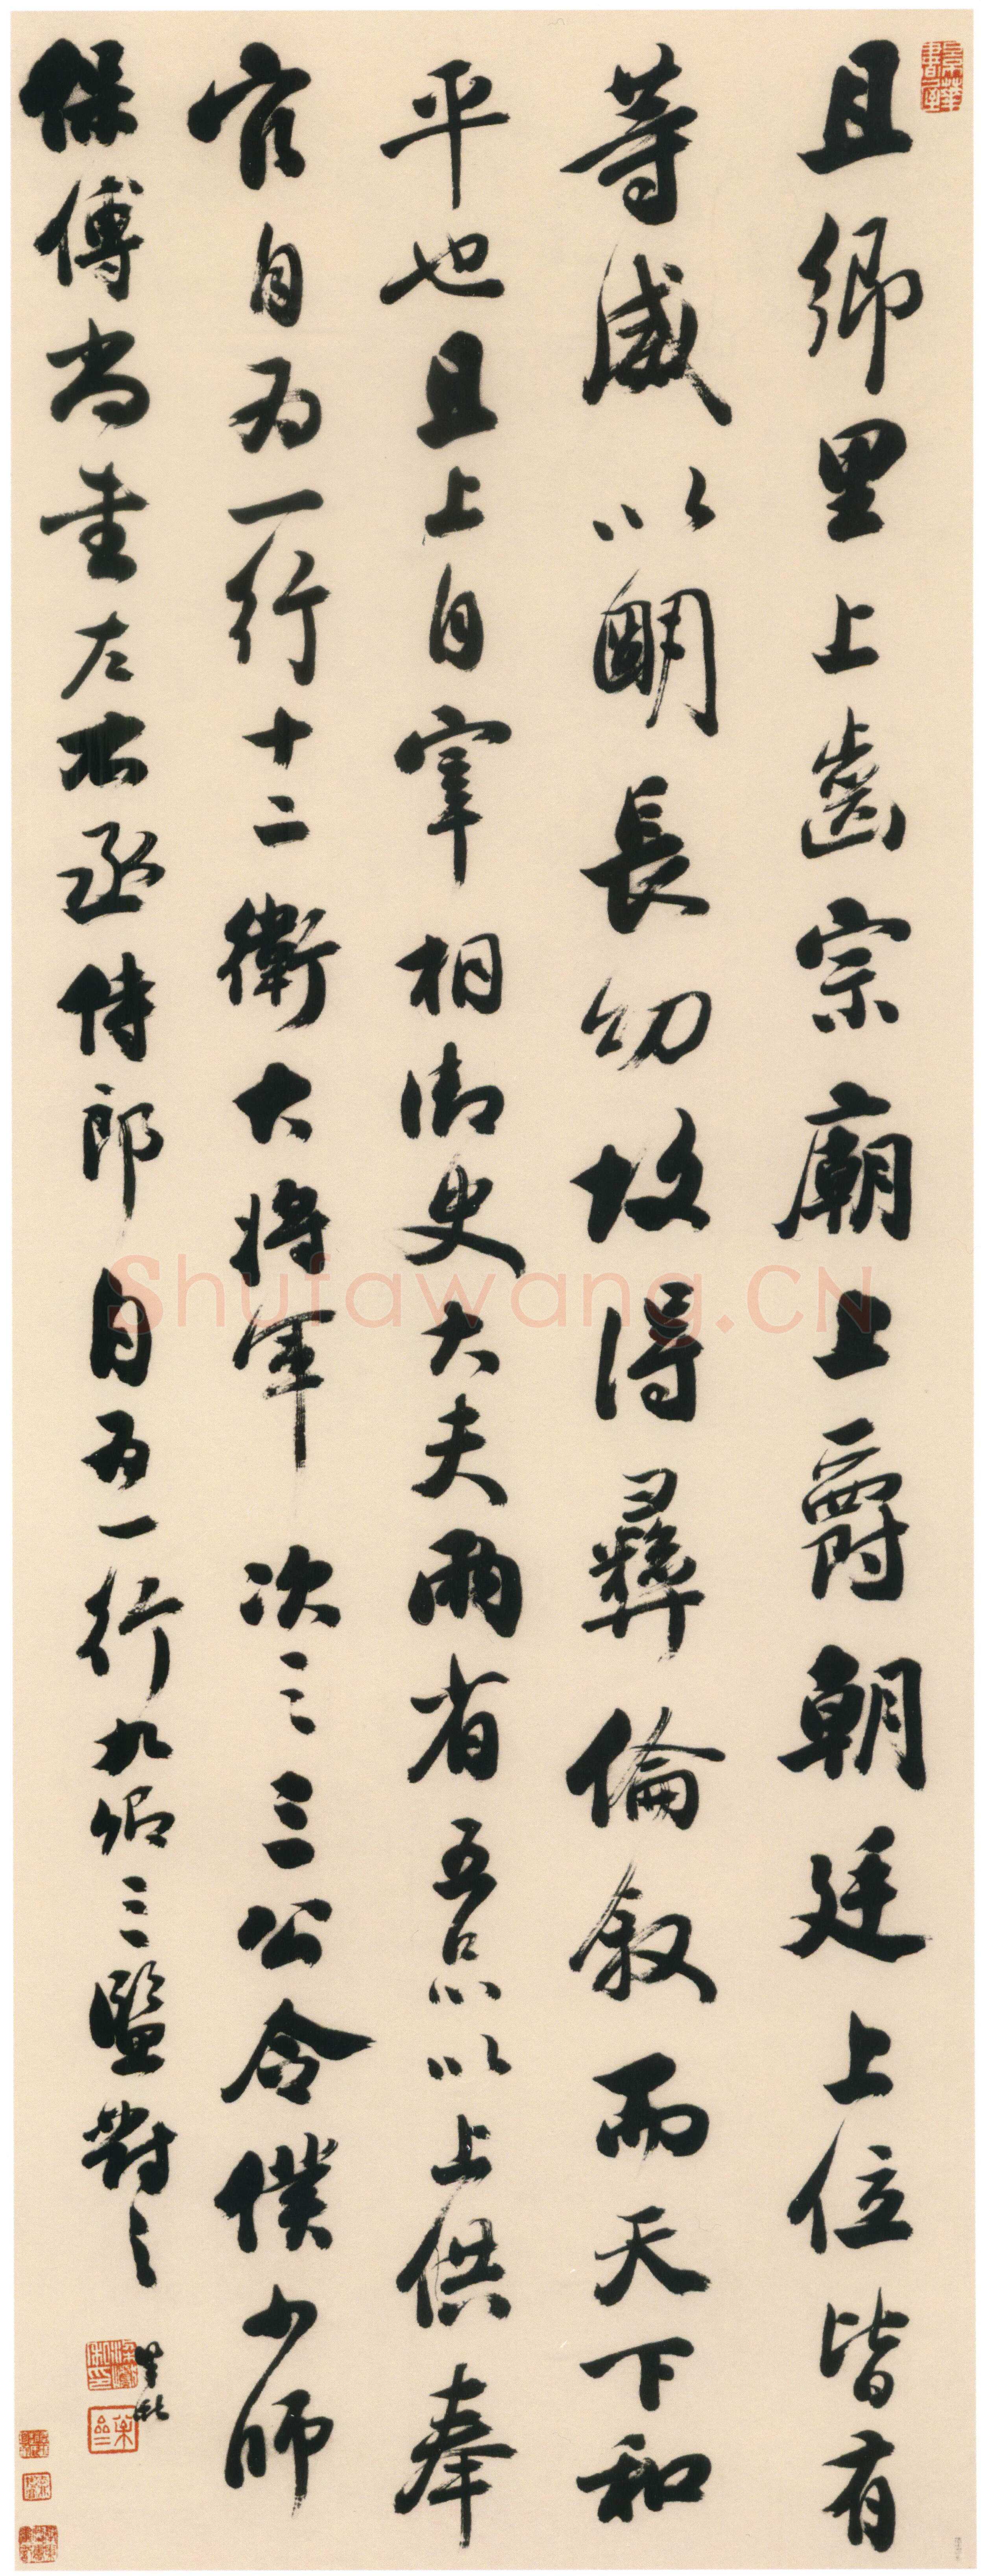 且鄉里上齒宗廟上爵朝廷上位皆有
等威以明長幼故得彝倫敘而天下和
平也且上自宰相御史大夫兩省五品以上供奉
官自為一行十二衛大將軍次之三公令僕少師
保傅尚書左右丞侍郎自為一行九卿三監對之
Shufawang.CN